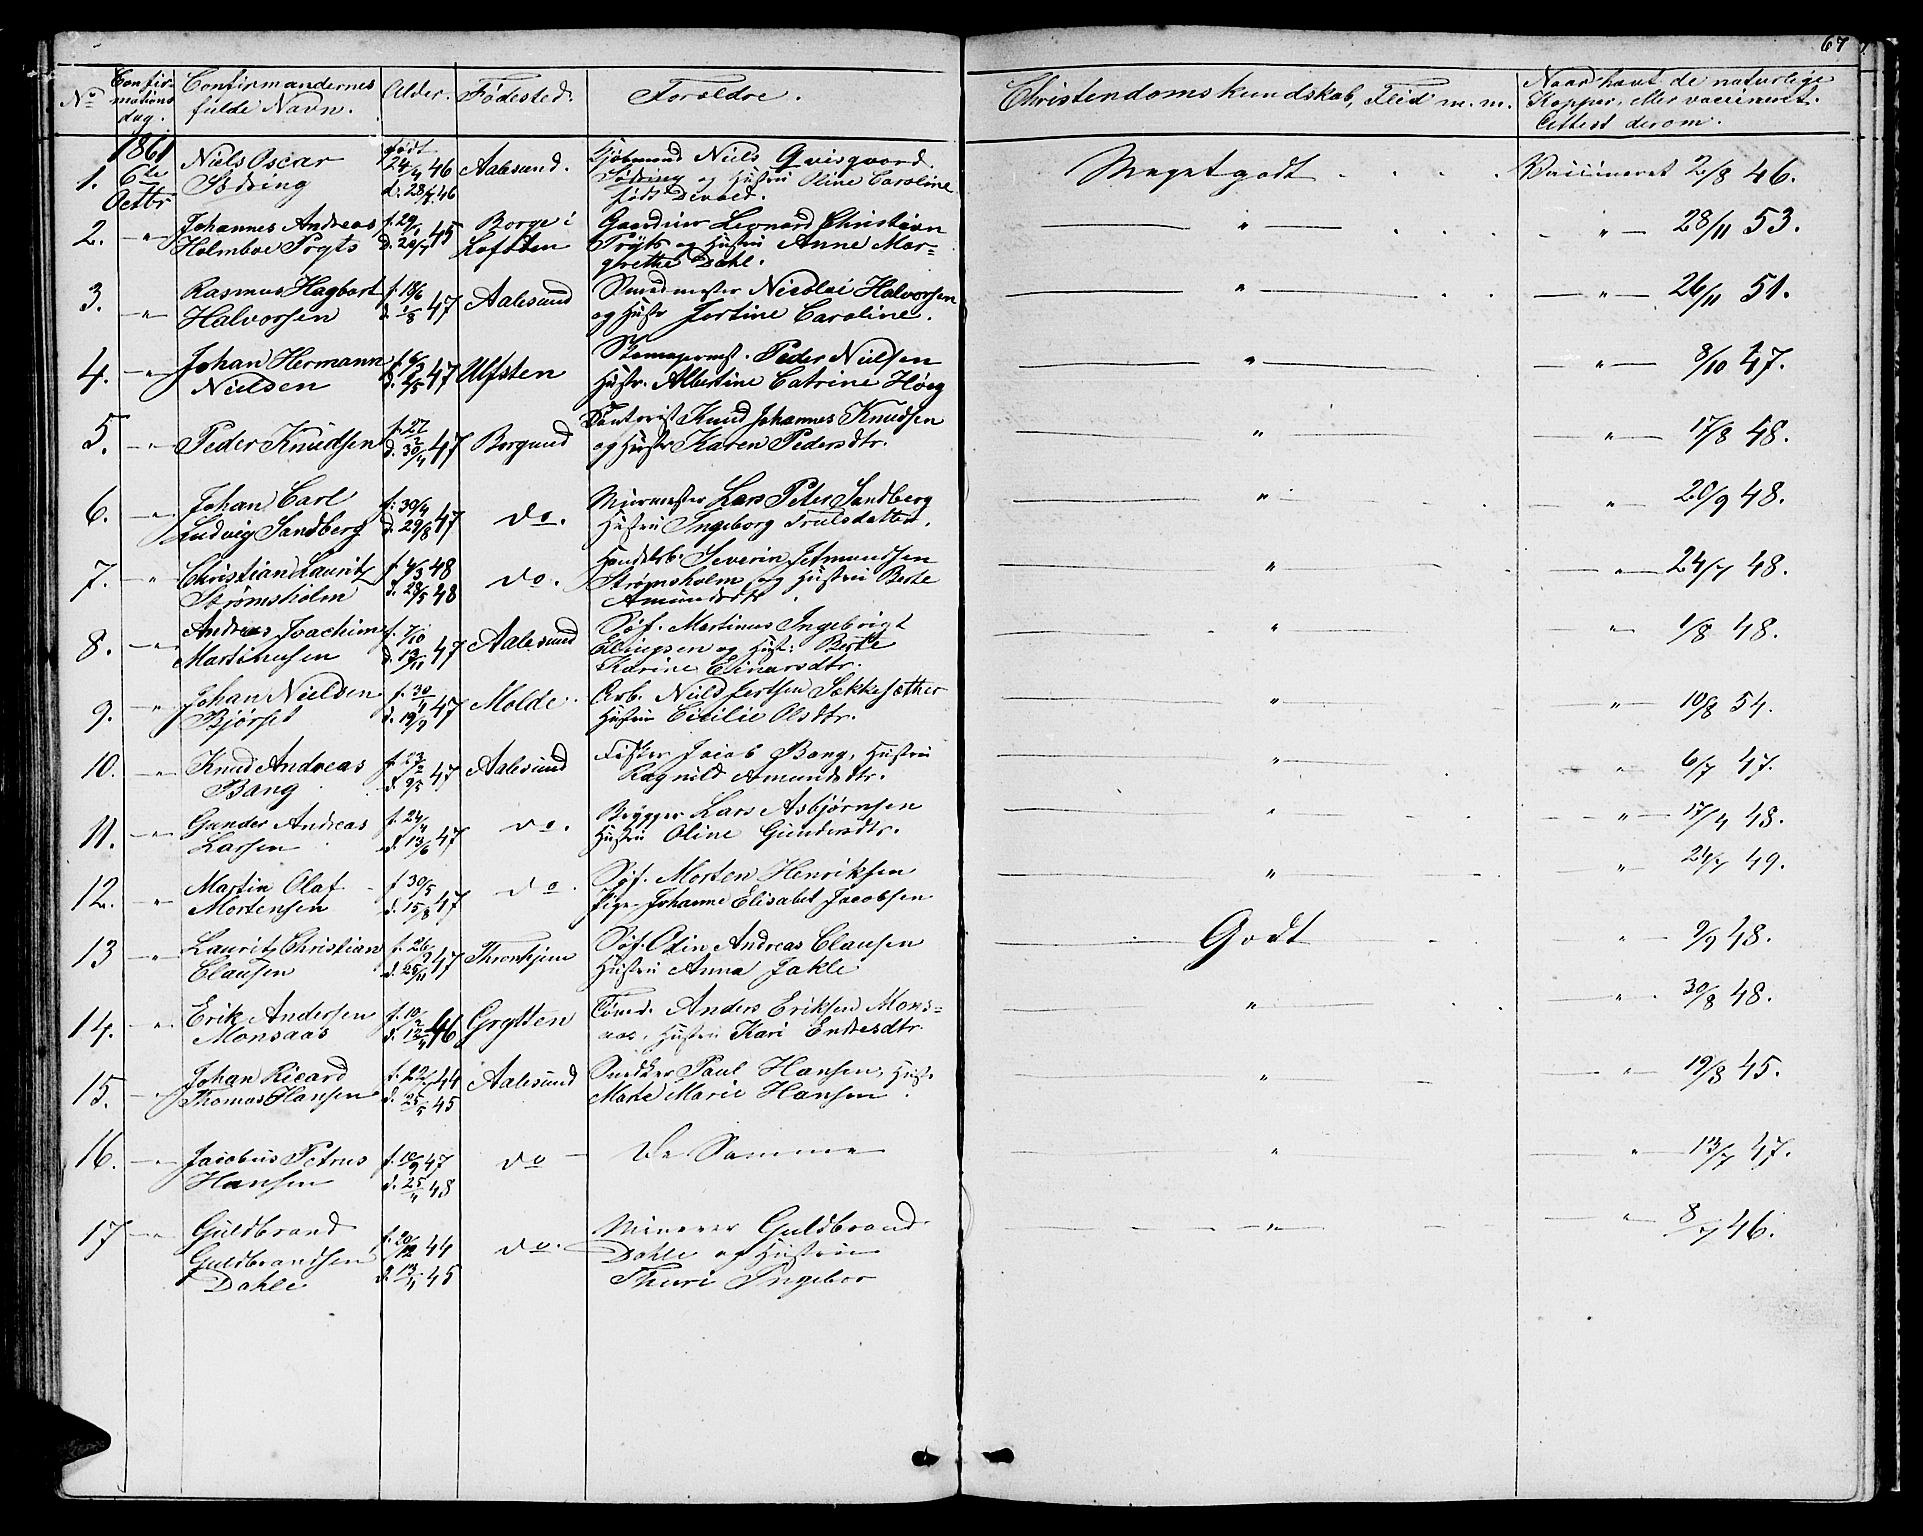 67
No
Confir-
mations
dag.
Confirmandernes
fulde Navn.
Alder.
Fødested.
Forældre.
Christendomskundskab, Flid m. m.
Naar havt de naturlige
Kopper, eller vaccineret.
Attest derom.
1861
1. 6te Octbr
Niels Oscar
Sødring
født
24/4 46
d. 28/7 46
Aalesund.
Kjøbmand Niels Qvisgaard
Sødring og Hustru Oline Caroline
født Devold.
Meget godt
Vaccineret 2/8 46.
2. -"-
Johannes Andreas
Holmboe
f. 29/1 45
Borge i
Lofoten
Leonard Christian
og Hustru Anne Mar-
grethe Dahl.
"
-"- 28/11 53.
3. -"-
Rasmus Hagbart
Halvorsen
f. 18/6 47
d. 1/8
Aalesund
Smedmester Nicolai Halvorsen
og Hustr Jertine Caroline.
"
-"- 26/11 51.
4. -"-
Johan Hermann
Nielsen
f. 6/3 47
d. 2/5
Ulfsten
Peder Nielsen
Hustr. Albertine Catrine Høeg
"
-"- 8/10 47.
5. -"-
Peder Knudsen
f. 27/2 47
d. 30/4
Borgund
Knud Johannes Knudsen
og Hustr Karen Pedersdtr.
"
-"- 17/8 48.
6. -"-
Johan Carl
Ludvig Sandberg
f. 30/4 47
d. 29/8
do.
Murmester Lars Peter Sandberg
Hustru Ingeborg Trulsdatter.
"
" 20/9 48.
7. "
Christian Lauritz
Strømsholm
f. 4/3 48
d. 28/5 48
do.
Handelsb. Severin Jetmundsen
Strømsholm og Hustru Berte
Amundsdtr.
"
-"- 24/7 48.
8. -"-
Andreas Joachim
Martinusen
f. 7/10 47
d. 13/11
Aalesund
Søf. Martinus Ingebrigt
Ellingsen og Hust: Berte
Karine Elinarsdtr.
"
-"- 1/8 48.
9. "
Johan Nielsen
Bjørset
f. 30/4 47
d. 19/9
Molde.
Arb. Niels Jertsen Sækkesæther
Hustru Cicilie Olsdtr.
"
-"- 10/8 54.
10. -"-
Knud Andreas
Bang
f. 23/2 47
d. 9/5
Aalesund
Fisker Jacob Bang, Hustru
Ragnild Amundsdtr.
"
" 6/7 47.
11. -"-
Gunder Andreas
Larsen
f. 24/4 47
d. 13/6
do.
Brygger Lars Asbjørnsen
Hustru Oline Gundersdtr.
"
-"- 17/4 48.
12. -"-
Martin Olaf
Mortensen
f 30/5 47
d. 15/8
do.
Søf. Morten Henriksen
Pige Johanne Elisabet Jacobsen
"
" 24/7 49.
13 "
Lauritz Christian
Clausen
f. 26/9 47
d. 25/11
Thronhjem
Søf. Odin Andreas Clausen
Hustru Anna Jakle
Godt
" 9/9 48.
14. "
Erik Andersen
Monsaas
f. 10/2 46
d. 12/4
Grytten
Tømd. Anders Eriksen Mons-
aas, Hustru Kari Endresdtr.
"
-"- 30/8 48.
15. -"-
Johan Ricard
Thomas Hansen
f. 22/7 44
d. 25/5 45
Aalesund
Snedker Paul Hansen, Hust.
Marte Marie Hansen.
"
-"- 19/8 45.
16. -"-
Jacobus Petrus
Hansen
f. 10/9 47
d. 25/4 48
do
De Samme
"
" 13/7 47.
17 -"-
Guldbrand
Guldbrandsen
Dahle
f. 20/12 44
d. 13/4 45
do.
Minerer Guldbrand
Dahle og Hustru
Thuri Ingebor
-"-
-"- 8/7 46.